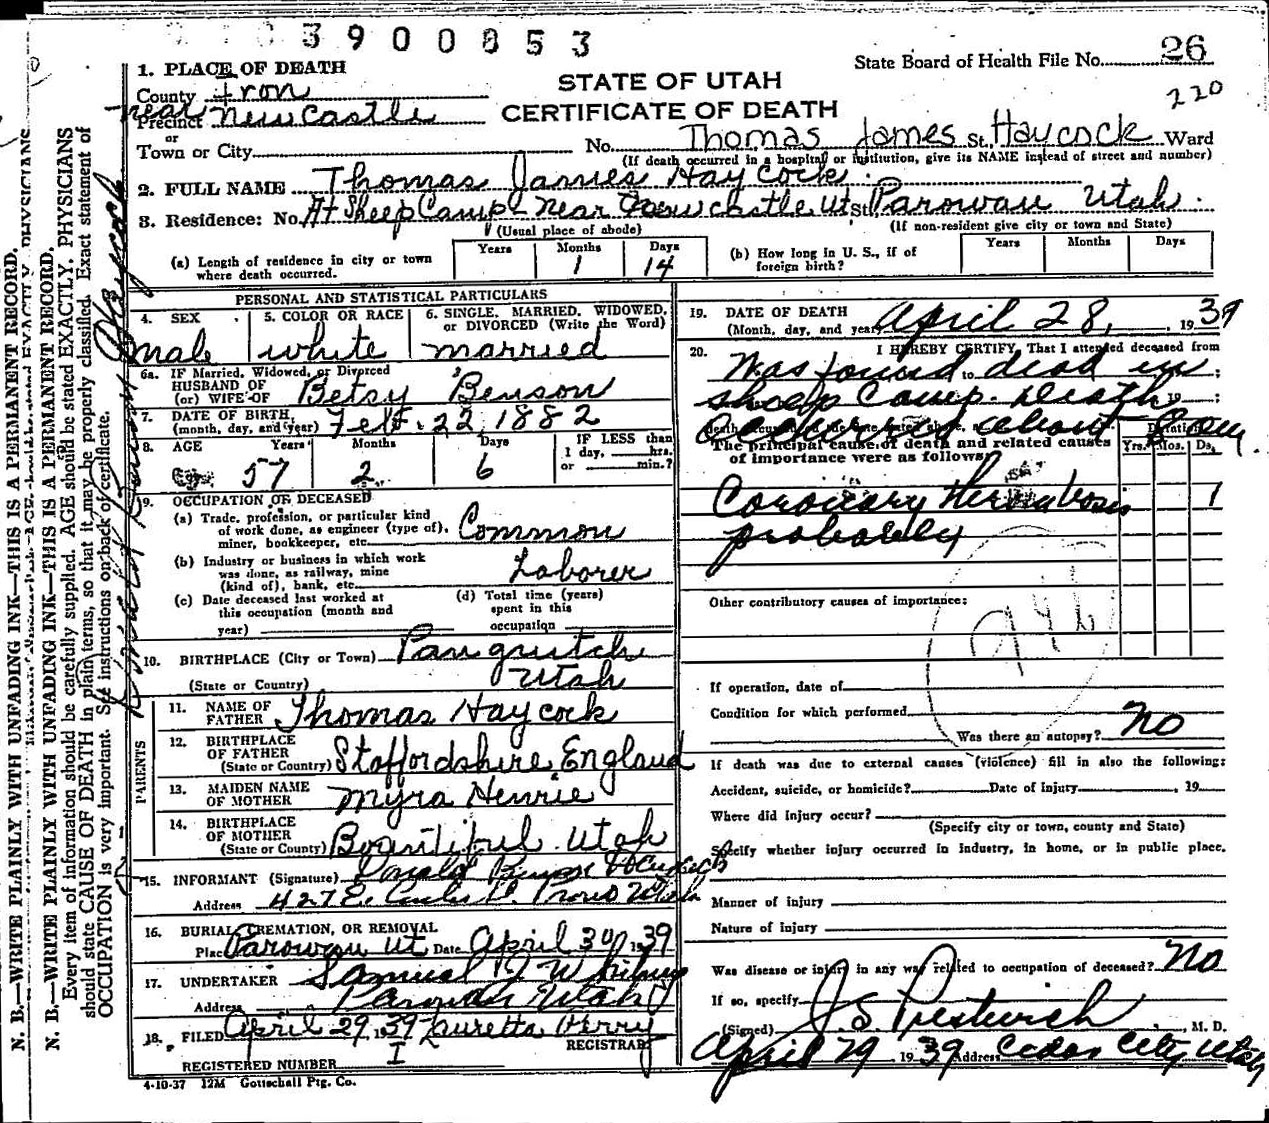 3900053
State Board of Health File No. 26
220
STATE OF UTAH
CERTIFICATE OF DEATH
1. PLACE OF DEATH
County Iron
Precinct near Newcastle
or
Town or City
No. Thomas James St. Haycock Ward
(If death occurred in a hospital or institution, give its NAME instead of street and number)
2. FULL NAME Thomas James Haycock
3. Residence: No. At Sheep Camp near Newcastle Ut St. Parowan Utah
(Usual place of abode) (If non-resident give city or town and State)
(a) Length of residence in city or town where death occurred. Years Months 1 Days 14
(b) How long in U. S., if of foreign birth? Years Months Days
PERSONAL AND STATISTICAL PARTICULARS
4. SEX male
5. COLOR OR RACE white
6. SINGLE, MARRIED, WIDOWED, or DIVORCED (Write the Word) married
6a. If Married, Widowed, or Divorced
HUSBAND OF
(or) WIFE OF Betsy Benson
7. DATE OF BIRTH
(month, day, and year) Feb. 22, 1882
8. AGE Years 57 Months 2 Days 6
IF LESS than 1 day, hrs. or min.?
9. OCCUPATION OF DECEASED
(a) Trade, profession, or particular kind
of work done, as engineer (type of),
miner, bookkeeper, etc. Common
(b) Industry or business in which work
was done, as railway, mine
(kind of), bank, etc. Laborer
(c) Date deceased last worked at
this occupation (month and
year)
(d) Total time (years)
spent in this
occupation
10. BIRTHPLACE (City or Town) Panguitch
(State or Country) Utah
PARENTS
11. NAME OF FATHER Thomas Haycock
12. BIRTHPLACE OF FATHER
(State or Country) Staffordshire England
13. MAIDEN NAME OF MOTHER Myra Henrie
14. BIRTHPLACE OF MOTHER
(State or Country) Bountiful Utah
15. INFORMANT (Signature) Donald Benson Haycock
Address 427 E. Provo Utah
16. BURIAL, CREMATION, OR REMOVAL
Place Parowan Ut Date April 30, 1939
17. UNDERTAKER Samuel
Address Parowan Utah
18. FILED April 29, 1939 Lauretta Perry
REGISTRAR
REGISTERED NUMBER I
4-10-37 12M Gottschall Ptg. Co.
19. DATE OF DEATH
(Month, day, and year) April 28, 1939
20. I HEREBY CERTIFY, That I attended deceased from
Was found to dead in
sheep Camp. Death 19
occurred about
The principal cause of death and related causes
of importance were as follows:
Duration
Yrs. Mos. Ds.
Coronary Thrombosis 1
probably
Other contributory causes of importance:
If operation, date of
Condition for which performed
Was there an autopsy? No
If death was due to external causes (violence) fill in also the following:
Accident, suicide, or homicide? Date of injury 19
Where did injury occur?
(Specify city or town, county and State)
Specify whether injury occurred in industry, in home, or in public place.
Manner of injury
Nature of injury
Was disease or injury in any way related to occupation of deceased? No
If so, specify
(Signed) J. S. Prestwich, M. D.
April 29 1939 Address Cedar City, Utah
N. B.—WRITE PLAINLY WITH UNFADING INK—THIS IS A PERMANENT RECORD.
N. B.—WRITE PLAINLY WITH UNFADING INK—THIS IS A PERMANENT RECORD.
Every item of information should be carefully supplied. AGE should be stated EXACTLY. PHYSICIANS
should state CAUSE OF DEATH in plain terms, so that it may be properly classified. Exact statement of
OCCUPATION is very important. See instructions on back of certificate.